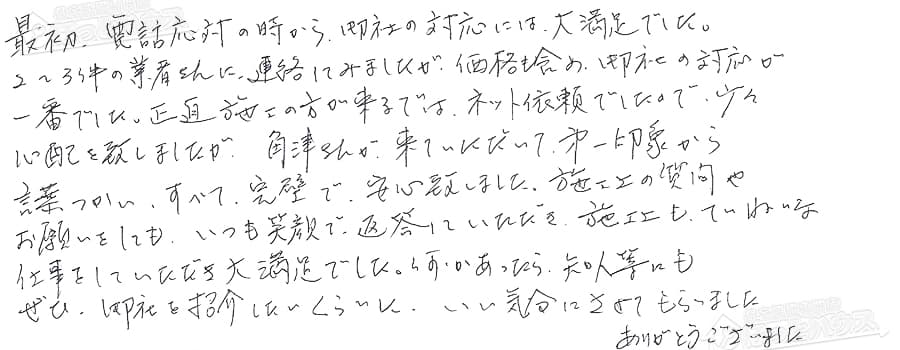 最初、電話応対の時から、御社の対応には、大満足でした。
2～3件の業者さんに、連絡してみましたが、価格も含め、御社の対応が
一番でした。正直施工の方が来るまでは、ネット依頼でしたので、少々
心配を致しましたが、角津さんが、来ていただいて、第一印象から
言葉つかい、すべて、完璧で、安心致しました。施工上の質問や
お願いをしても、いつも笑顔で、返答していただき、施工も、ていねいな
仕事をしていただき大満足でした。何かあったら、知人等にも
ぜひ、御社を紹介したいくらいに、いい気分にさせてもらいました
ありがとうございました